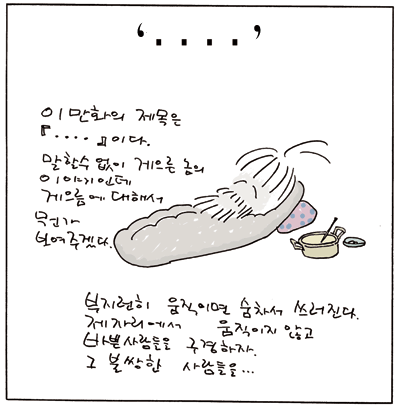 ‘. . . .’
이 만화의 제목은
『····』이다.
말할수 없이 게으른 놈의
이야기인데
게으름에 대해서
뭔가
보여주겠다.
부지런히 움직이면 숨차서 쓰러진다.
제자리에서 움직이지 않고
바쁜사람들을 구경하자.
그 불쌍한 사람들을...